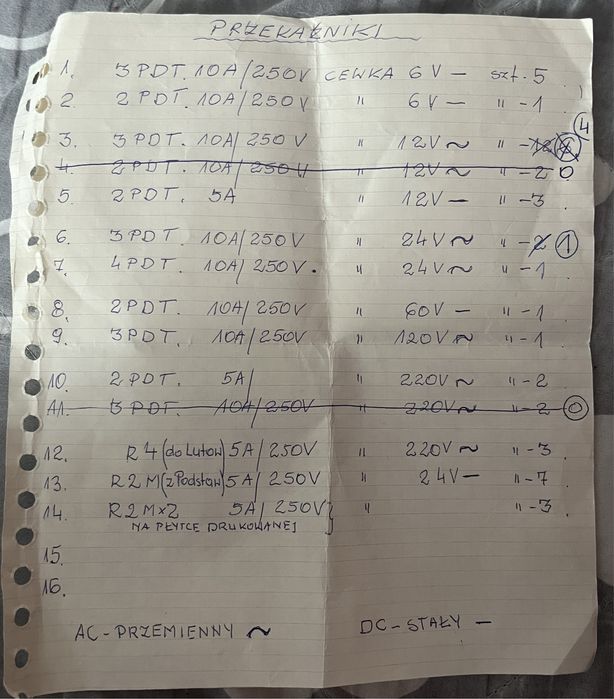 PRZEKAŹNIKI
1. 3PDT. 10A/250V CEWKA 6V — szt. 5
2. 2PDT. 10A/250V " 6V — " - 1
4
3. 3PDT. 10A/250V " 12V ~ " -
4. 2PDT. 10A/250V " 12V ~ " - 2 0
5. 2PDT. 5A " 12V — " - 3
6. 3PDT. 10A/250V " 24V ~ " - 2 1
7. 4PDT. 10A/250V. " 24V ~ " - 1
8. 2PDT. 10A/250V " 60V — " - 1
9. 3PDT. 10A/250V " 120V ~ " - 1
10. 2PDT. 5A/ " 220V ~ " - 2
11. 3PDT. 10A/250V " 220V ~ " - 2 0
12. R4 (do Lutow) 5A/250V " 220V ~ " - 3
13. R2M (z Podstaw) 5A/250V " 24V — " - 7
14. R2M×2 5A/250V } " " - 3
NA PŁYTCE DRUKOWANEJ
15.
16.
AC - PRZEMIENNY ~ DC - STAŁY —